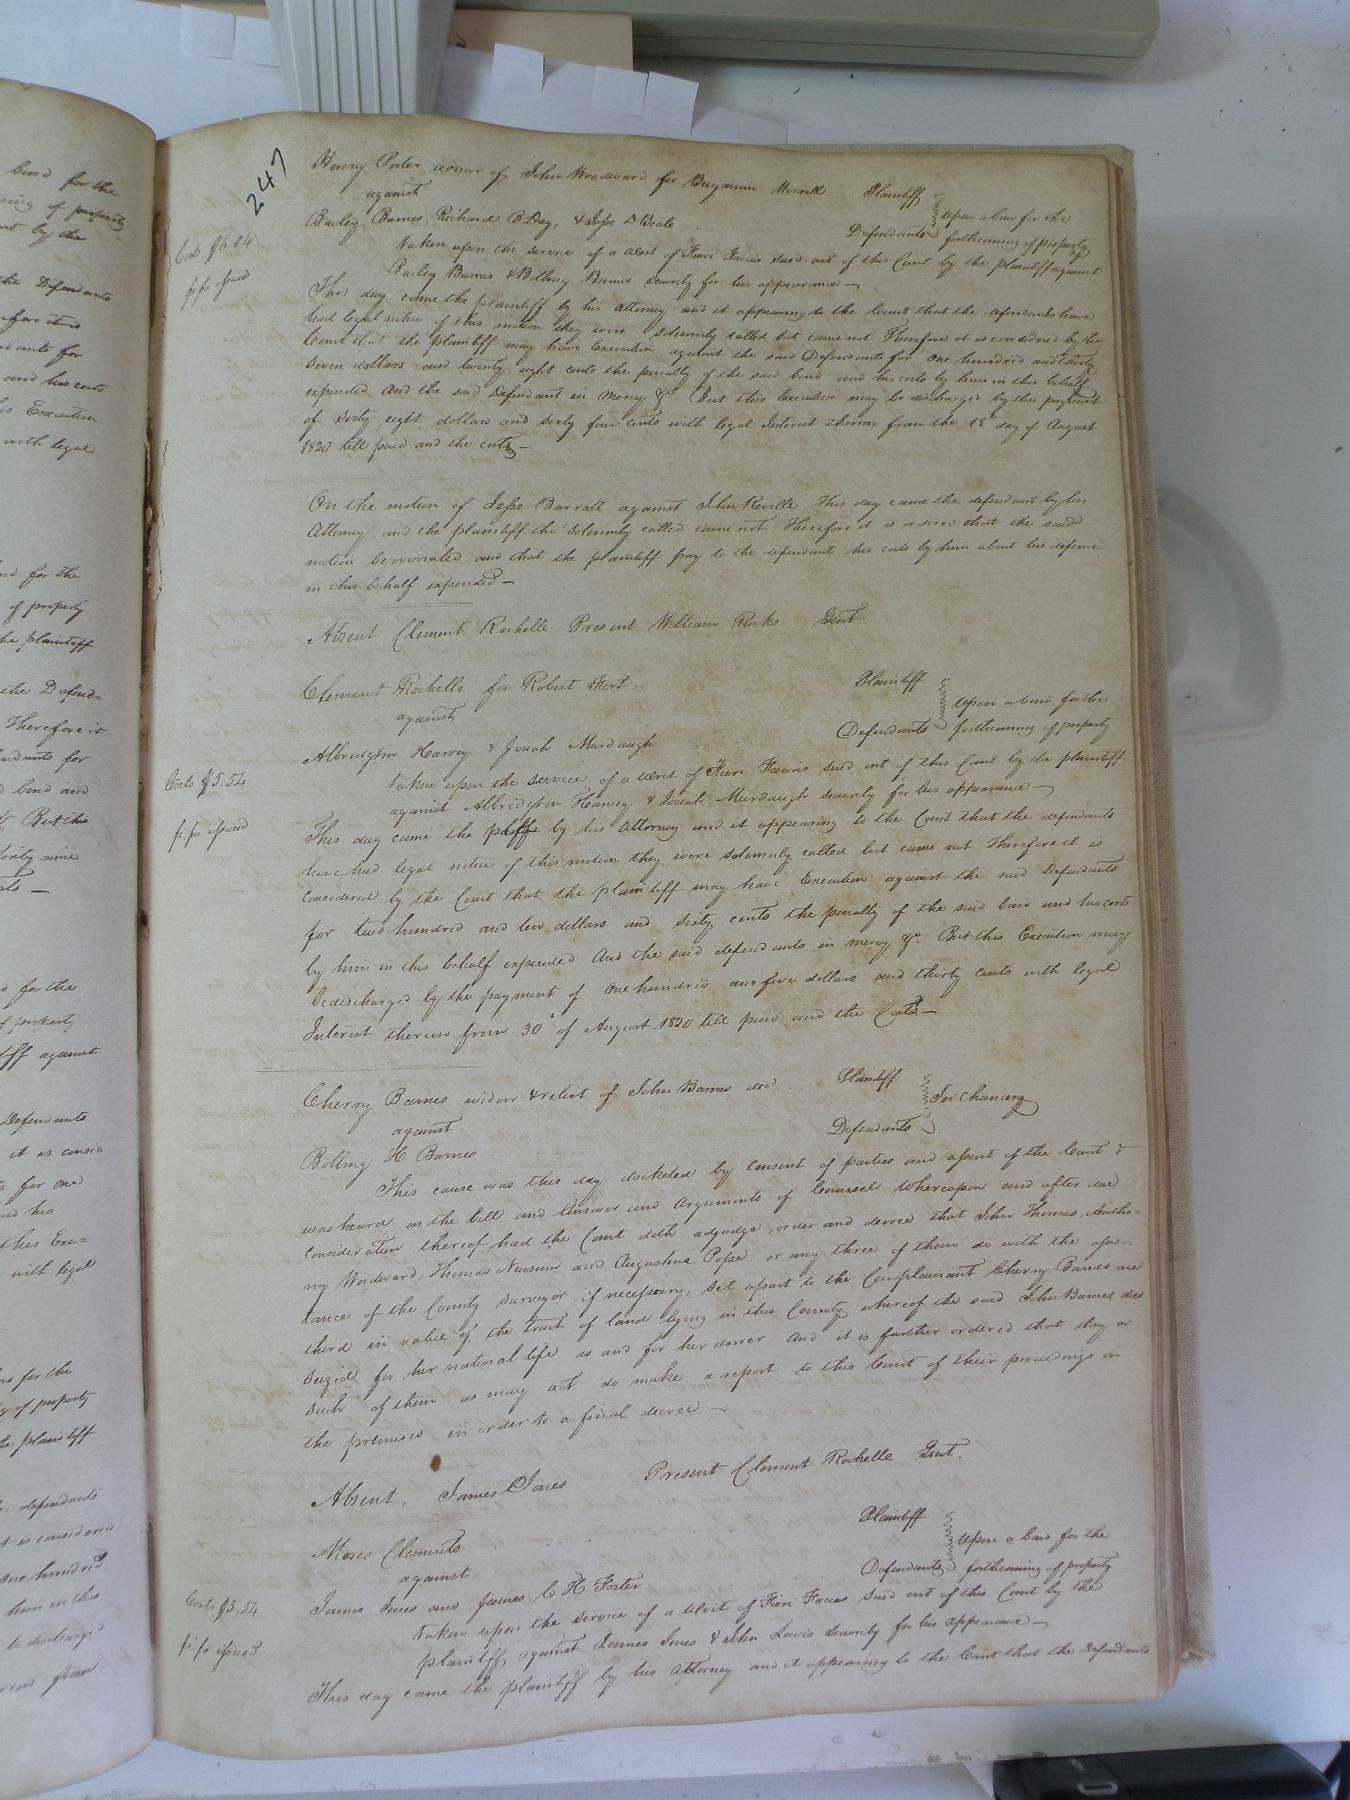 247
Henry Porter admr of John Woodward for Benjamin Worrell Plaintiff
against
Bailey Barnes, Richard B Day, & Jesse D Beale Defendants
Upon a bond for the
forthcoming of property
Costs $6.04
fi fa issued
taken upon the service of a Writ of Fieri Facias sued out of this Court by the plaintiff against
Bailey Barnes & Bolling Barnes security for his appearance —
This day came the plaintiff by his attorney and it appearing to the Court that the defendants have
had legal notice of this motion they were solemnly called but came not Therefore it is considered by the
Court that the plaintiff may have Execution against the said Defendants for one hundred and thirty
seven dollars and twenty eight cents the penalty of the said bond and his costs by him in this behalf
expended And the said Defendant in mercy &c But this Execution may be discharged by the payment
of Sixty eight dollars and sixty four cents with legal Interest thereon from the 18 day of August
1820 till paid and the costs —
On the motion of Jesse Barratt against John Reville This day came the defendant by his
Attorney and the plaintiff tho' solemnly called came not Therefore it is ordered that the said
motion be overruled and that the plaintiff pay to the defendant his costs by him about his defence
in this behalf expended —
Absent Clement Rochelle Present William Ricks Gent.
Clement Rochelle for Robert Fort Plaintiff
against
Albridgton Harvey & Josiah Murdaugh Defendants
Upon a bond for the
forthcoming of property
Costs $5.54
fi fa issued
taken upon the service of a Writ of Fieri Facias sued out of this Court by the plaintiff
against Albridgton Harvey & Josiah Murdaugh security for his appearance —
This day came the plff by his attorney and it appearing to the Court that the defendants
have had legal notice of this motion they were solemnly called but came not Therefore it is
Considered by the Court that the plaintiff may have Execution against the said Defendants
for two hundred and ten dollars and sixty cents the penalty of the said bond and his costs
by him in this behalf expended And the said defendants in mercy &c. But this Execution may
be discharged by the payment of One hundred and five dollars and thirty cents with legal
Interest thereon from 30 of August 1820 till paid and the Costs —
Cherry Barnes widow & relict of John Barnes decd Plaintiff
against
Bolling H Barnes Defendants
In Chancery
This cause was this day docketed by consent of parties and assent of the Court &
was heard on the bill and Answer and Arguments of Counsel Whereupon and after due
consideration thereof had the Court doth adjudge, order and decree that John Thomas, Antho-
ny Woodward, Thomas Newsum and Augustine Pope or any three of them do with the assis-
tance of the County surveyor if necessary, set apart to the Complainant Cherry Barnes one
third in value of the tract of land lying in this County whereof the said John Barnes died
seized for her natural life as and for her dower And it is further ordered that they or
such of them as may act do make a report to this Court of their proceedings in
the premises in order to a final decree —
Absent, James C Jones Present Clement Rochelle Gent.
Moses Clements Plaintiff
against
James Jones and James C H Foster Defendants
Upon a bond for the
forthcoming of property
Costs $5.54
fi fa issued
taken upon the service of a Writ of Fieri Facias sued out of this Court by the
plaintiff against James Jones & John Lewis Security for his appearance —
This day came the plaintiff by his Attorney and it appearing to the Court that the Defendants